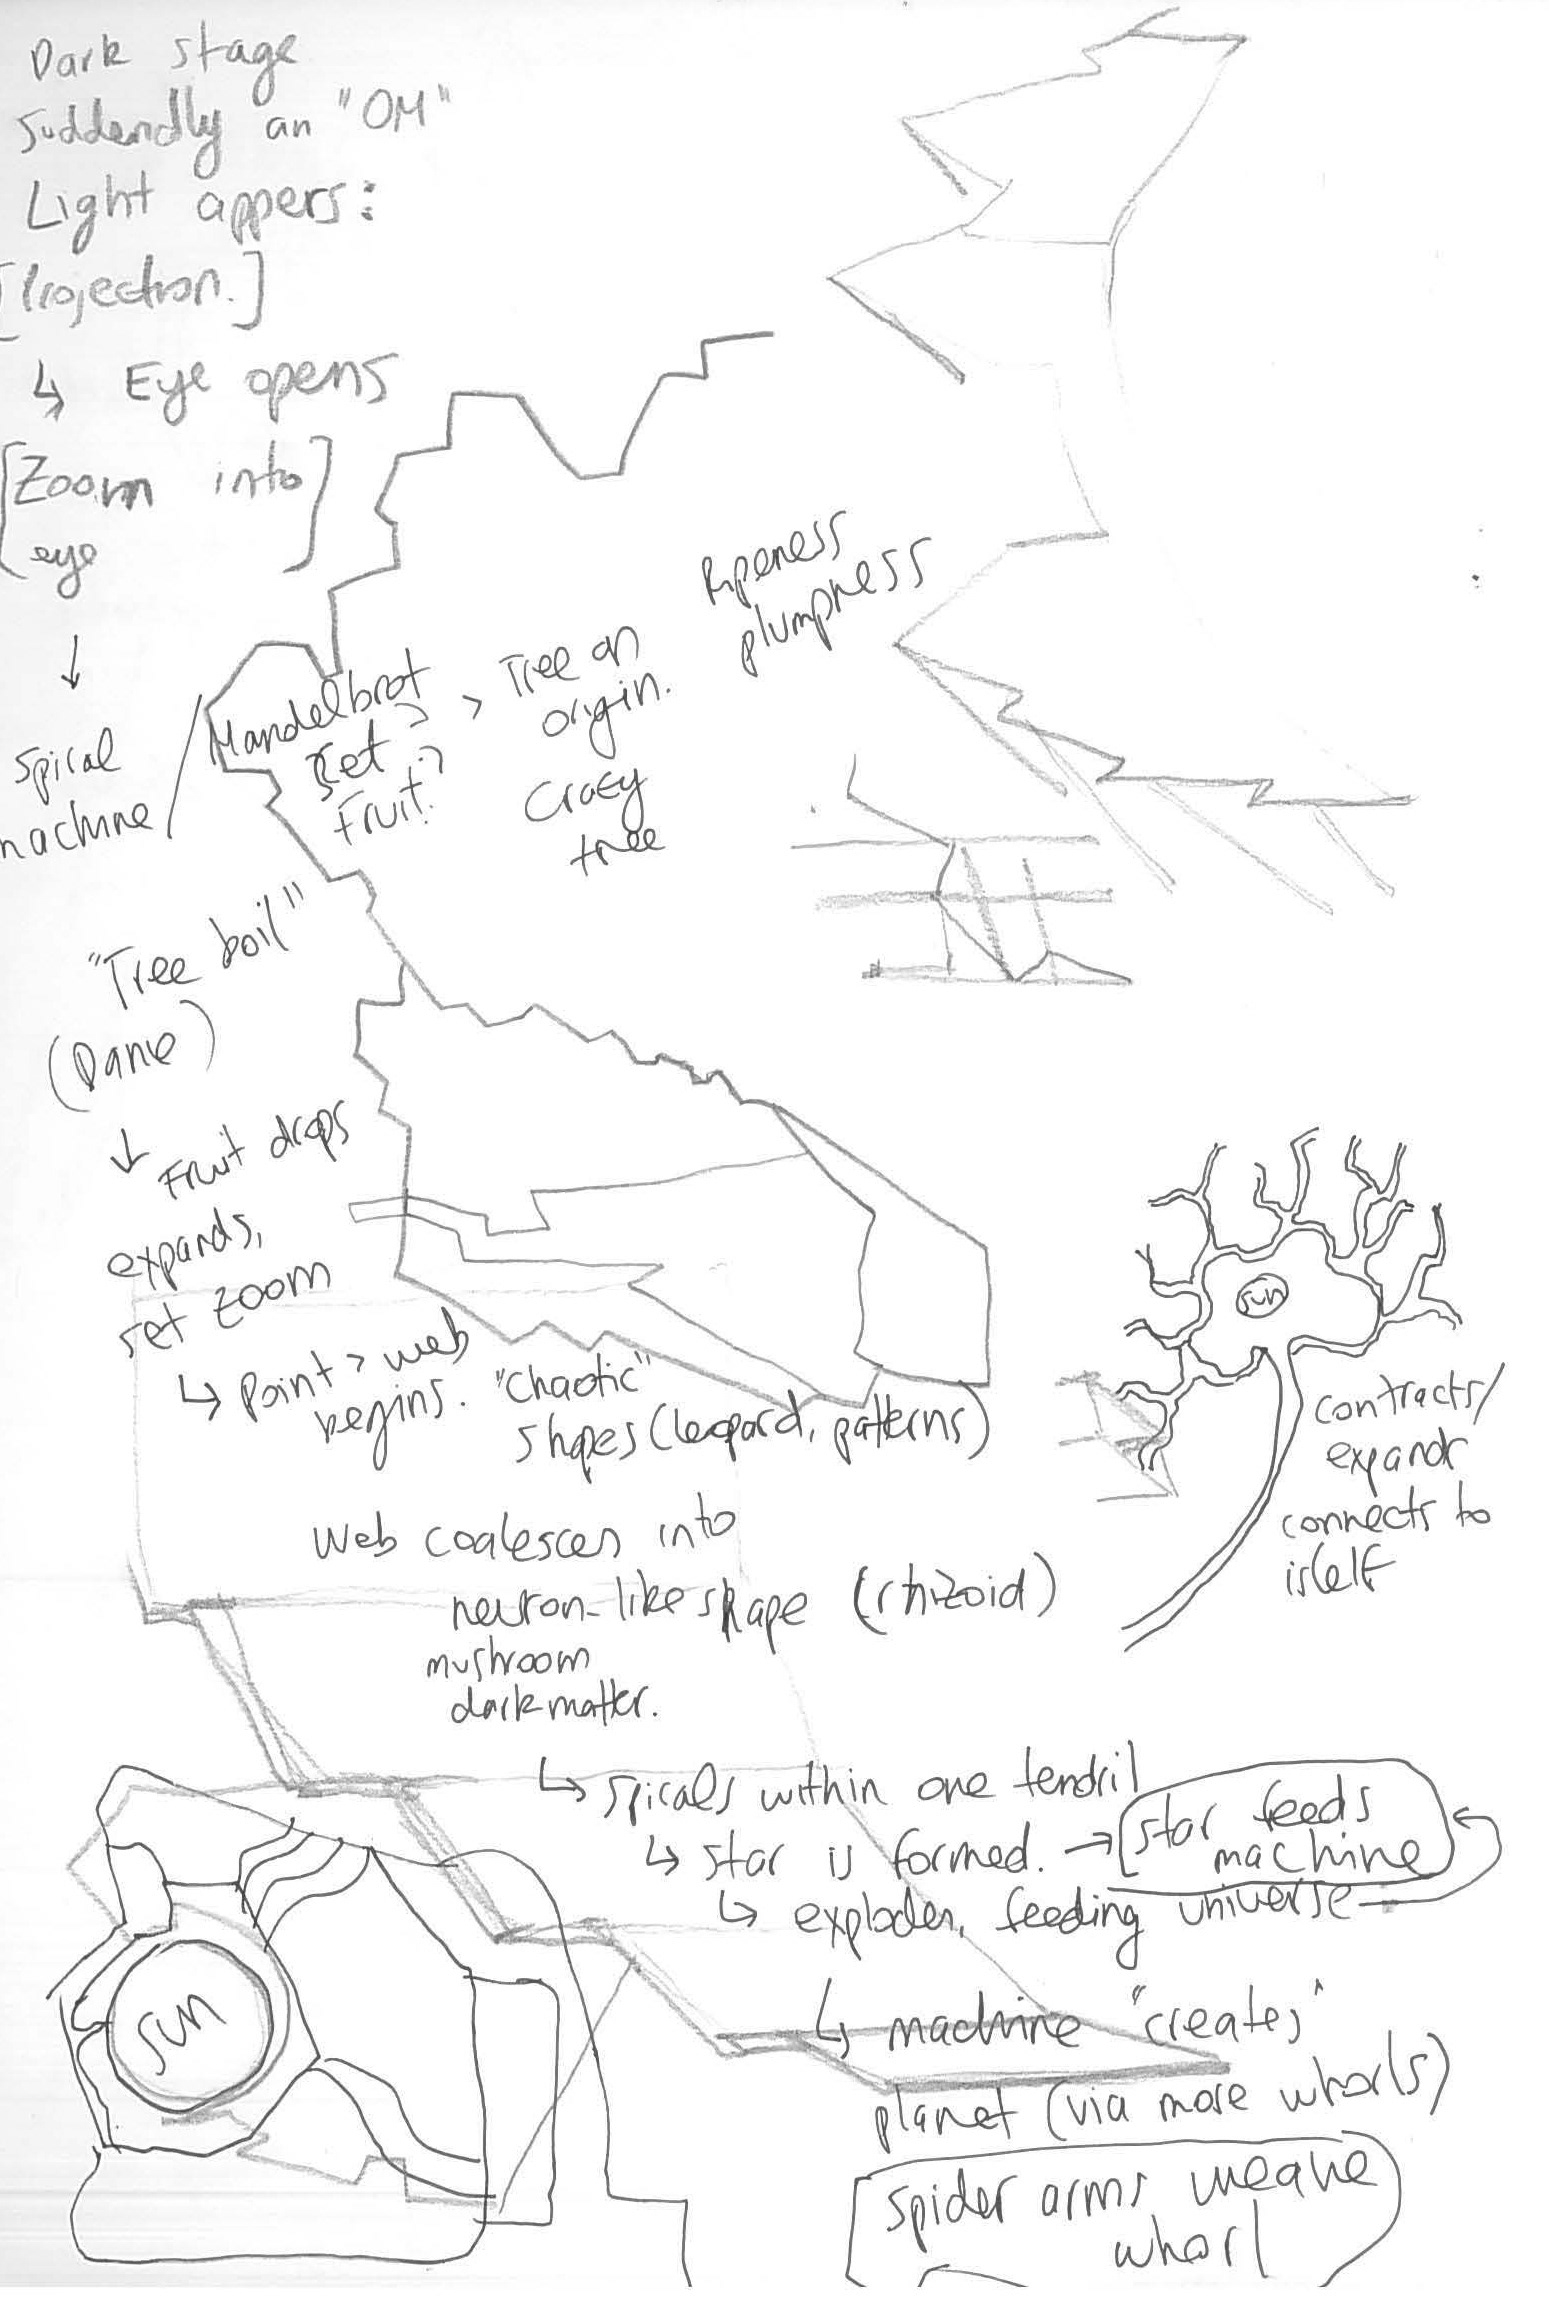 Dark stage
suddendly an "OM"
Light appers:
[Projection.]
↳ Eye opens
[Zoom into
eye]
↓
spiral
machine /
Mandelbrot
set ?
Fruit?
> Tree an
origin.
Crazy
tree
Ripeness
plumpness
"Tree boil"
(Dance)
↓ Fruit drops
expands,
set zoom
↳ Point > web
begins. "Chaotic"
shapes (leopard, patterns)
Web coalesces into
neuron-like shape (rhizoid)
mushroom
dark matter.
sun
contracts/
expands
connects to
iself
↳ spirals within one tendril
↳ star is formed. → star feeds
machine
↳ explodes, feeding universe
↳ machine "creates"
planet (via more whorls)
spider arms weave
whorl
sun